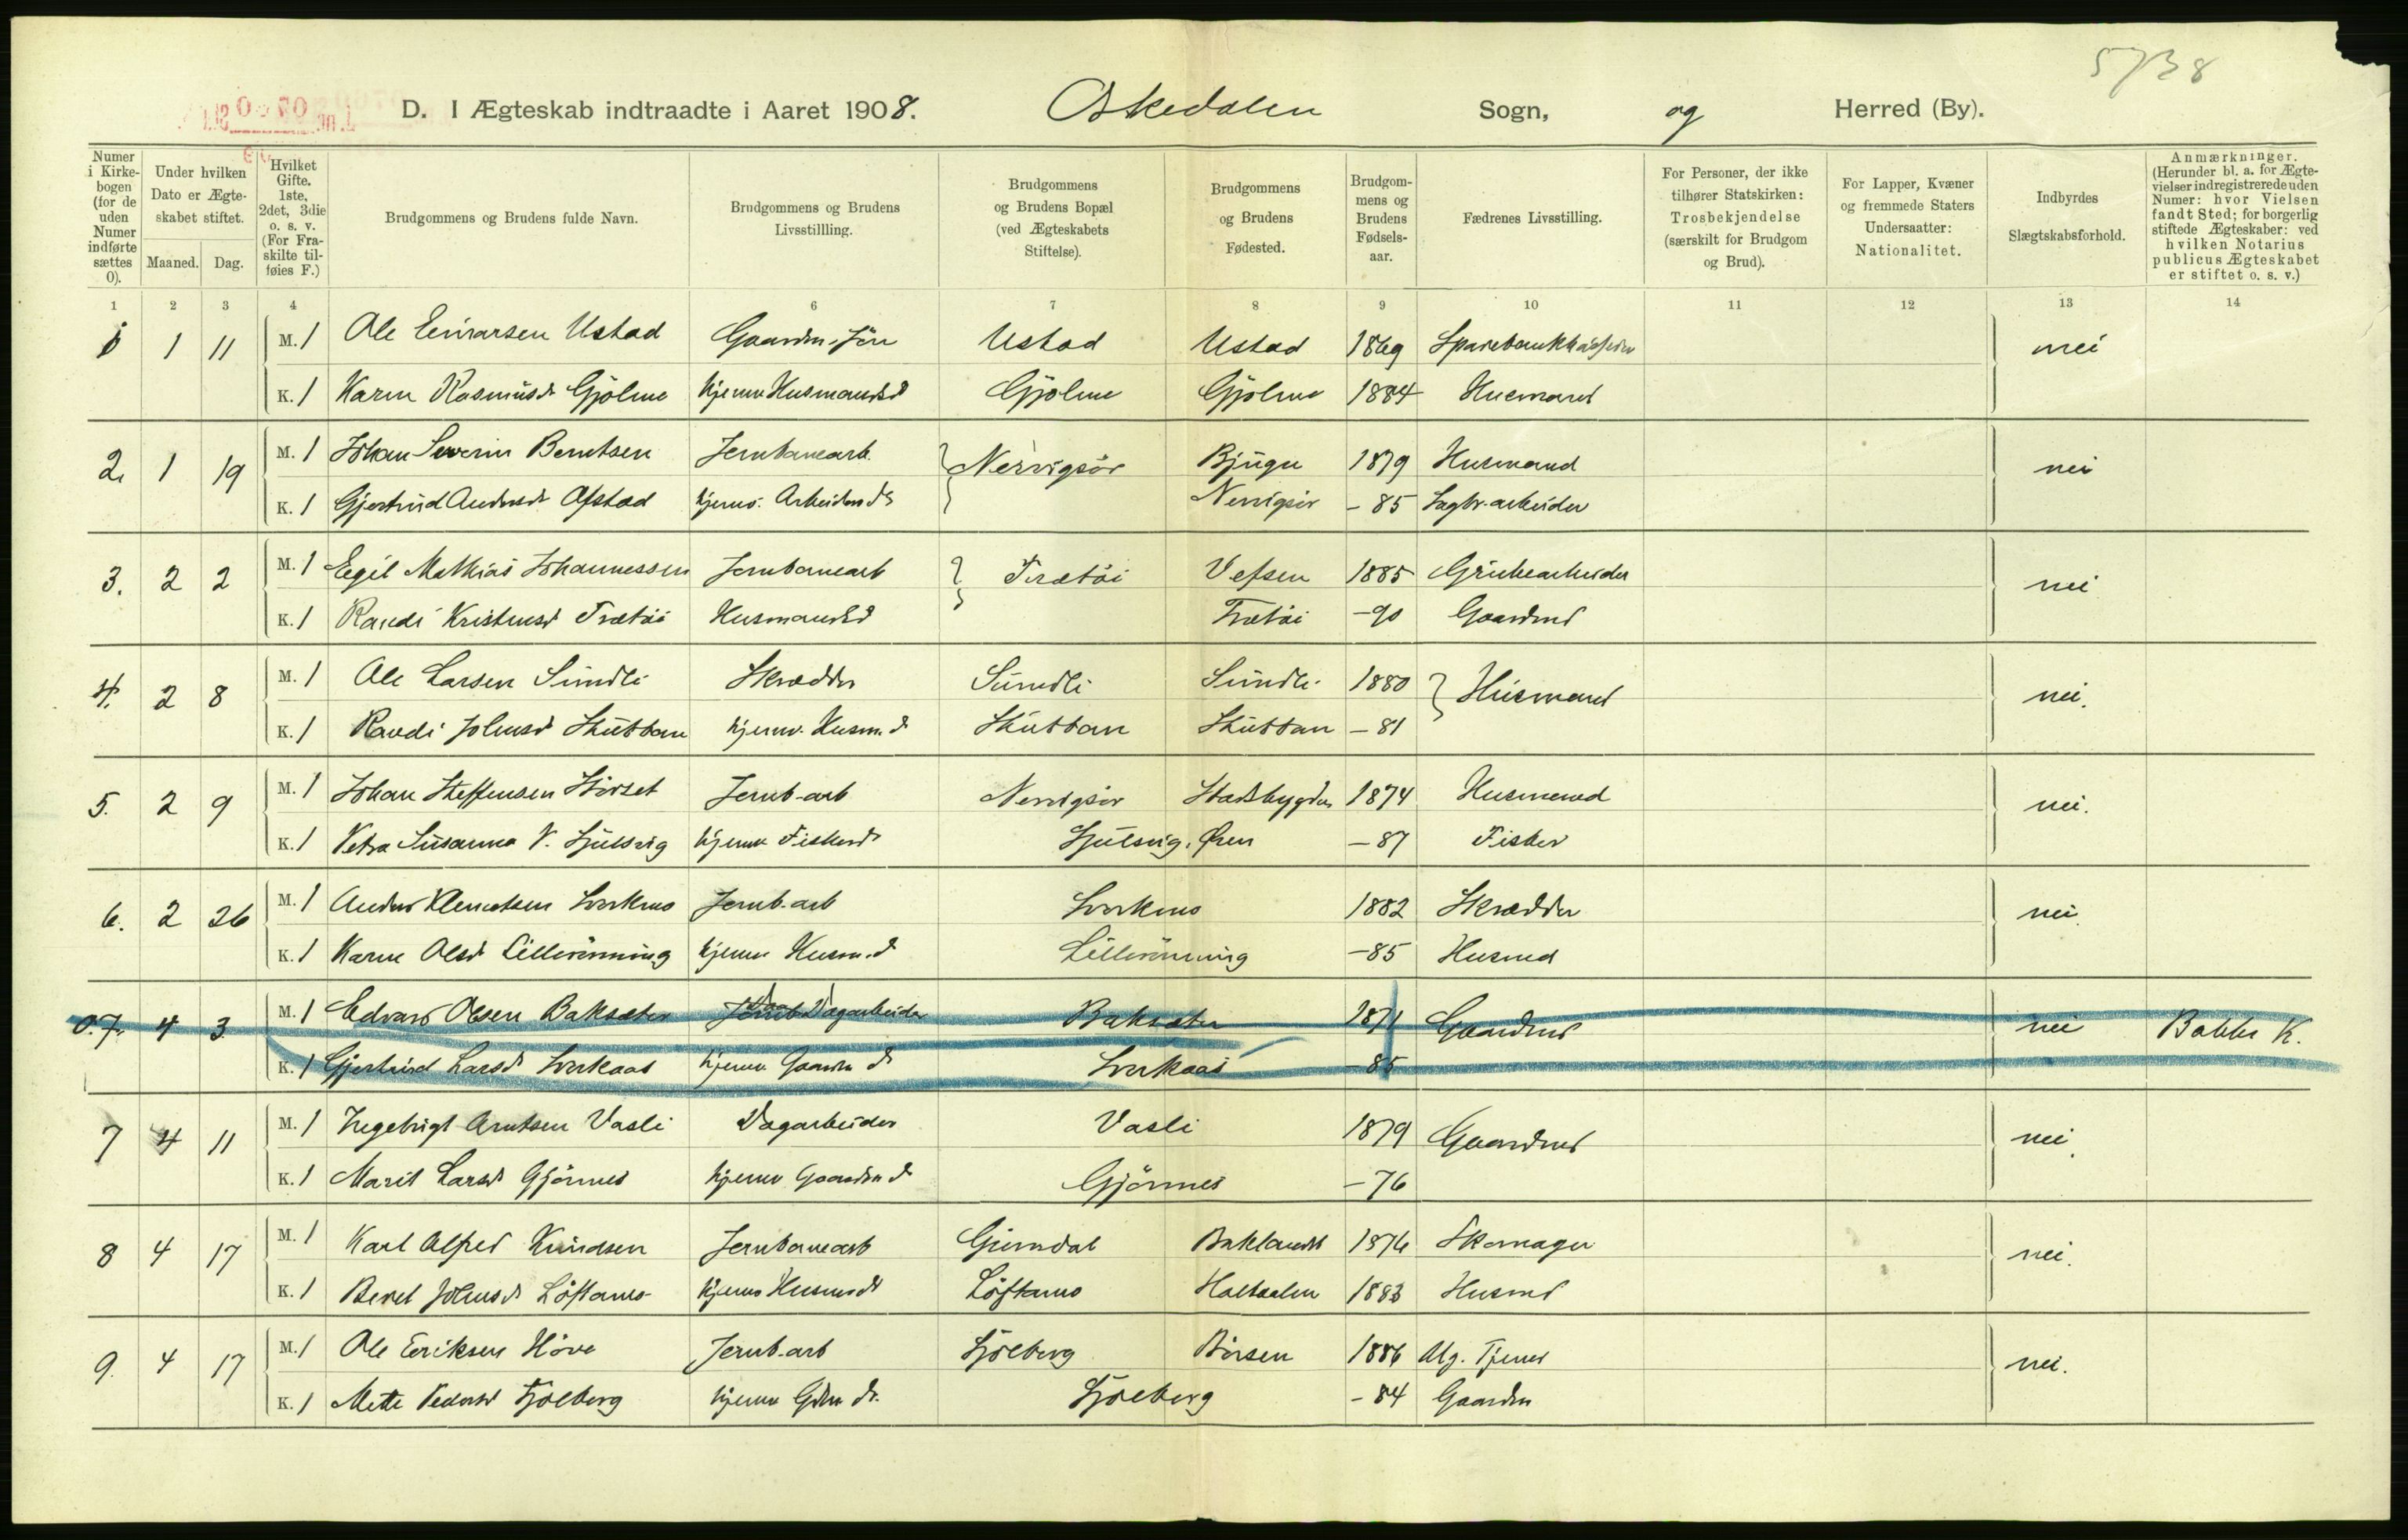 5738
D. I Ægteskab indtraadte i Aaret 1908. Oskedalen Sogn, og Herred (By).
Numer i Kirkebogen (for de uden Numer indførte sættes 0).
Under hvilken Dato er Ægteskabet stiftet.
Maaned. Dag.
Hvilket Gifte. 1ste, 2det, 3die o. s. v. (For Fraskilte tilføies F.)
Brudgommens og Brudens fulde Navn.
Brudgommens og Brudens Livsstillling.
Brudgommens og Brudens Bopæl (ved Ægteskabets Stiftelse).
Brudgommens og Brudens Fødested.
Brudgommens og Brudens Fødselsaar.
Fædrenes Livsstilling.
For Personer, der ikke tilhører Statskirken: Trosbekjendelse (særskilt for Brudgom og Brud).
For Lapper, Kvæner og fremmede Staters Undersaatter: Nationalitet.
Indbyrdes Slægtskabsforhold.
Anmærkninger. (Herunder bl. a. for Ægtevielser indregistrerede uden Numer: hvor Vielsen fandt Sted; for borgerlig stiftede Ægteskaber: ved hvilken Notarius publicus Ægteskabet er stiftet o. s. v.)
1 2 3 4 6 7 8 9 10 11 12 13 14
1 1 11 M. 1 Ole Einarsen Ustad Gaardm. sön Ustad Ustad 1869 nei
K. 1 Karen Rasmusd. Gjölme hjemv Husmandsd Gjölme Gjölme 1884 Husmand
2. 1 19 M. 1 Johan Severin Berntsen Jernbanearb. Nervigsör Bjugn 1879 Husmand nei
K. 1 Gjertrud Andersd. Ofstad hjemv. Arbeiderd. Nervigsör - 85 Sagbr. arbeider
3. 2 2 M. 1 Egil Mathias Johannessen Jernbanearb Trætöi Vefsen 1885 Grubearbeider nei
K. 1 Randi Kristensd Trætöi Husmandsd Trætöi -90 Gaardmd
4. 2 8 M. 1 Ole Larsen Sundli Skrædder Sundli Sundli 1880 Husmand nei.
K. 1 Randi Johnsd Skuttan hjemv. Husm. d Skuttan Skuttan - 81
5. 2 9 M. 1 Johan Steffensen Hörset Jernb-arb Nervigsör Stadsbygden 1874 Husmand nei.
K. 1 Petra Susanna V. Sjulsvig hjemv Fiskerd Sjulsvig, Ören - 87 Fisker
6. 2 26 M. 1 Anders Klemetsen Sverkmo Jernb-arb Sverkmo 1882 Skrædder nei.
K. 1 Karen Olsd Lillerönning hjemv Husm. d Lillerönning -85 Husmd
0.7. 4 3 M. 1 Edvard Olsen Baksæter Jernb Dagarbeider Baksæter 1871 Gaardmd nei K.
K. 1 Gjertrud Larsd Sverkaas hjemv Gaardm d Sverkaas 85
7 4 11 M. 1 Ingebrigt Arntsen Vasli Dagarbeider Vasli 1879 Gaardmd nei.
K. 1 Marit Larsd Gjönnes hjemv Gaardm d Gjönnes - 76
8 4 17 M. 1 Karl Alfred Knudsen Jernbanearb Gjerndal Baklandet 1876 Skomager nei.
K. 1 Beret Johnsd Löftamo hjemv Husmd Löftamo Holtaalen 1883 Husmd
9. 4 17 M. 1 Ole Eriksen Höve Jernb-arb Sjölberg Börsen 1886 nei.
K. 1 Mette Pedersd Sjölberg hjemv Gdm d. Sjölberg - 84 Gaardm